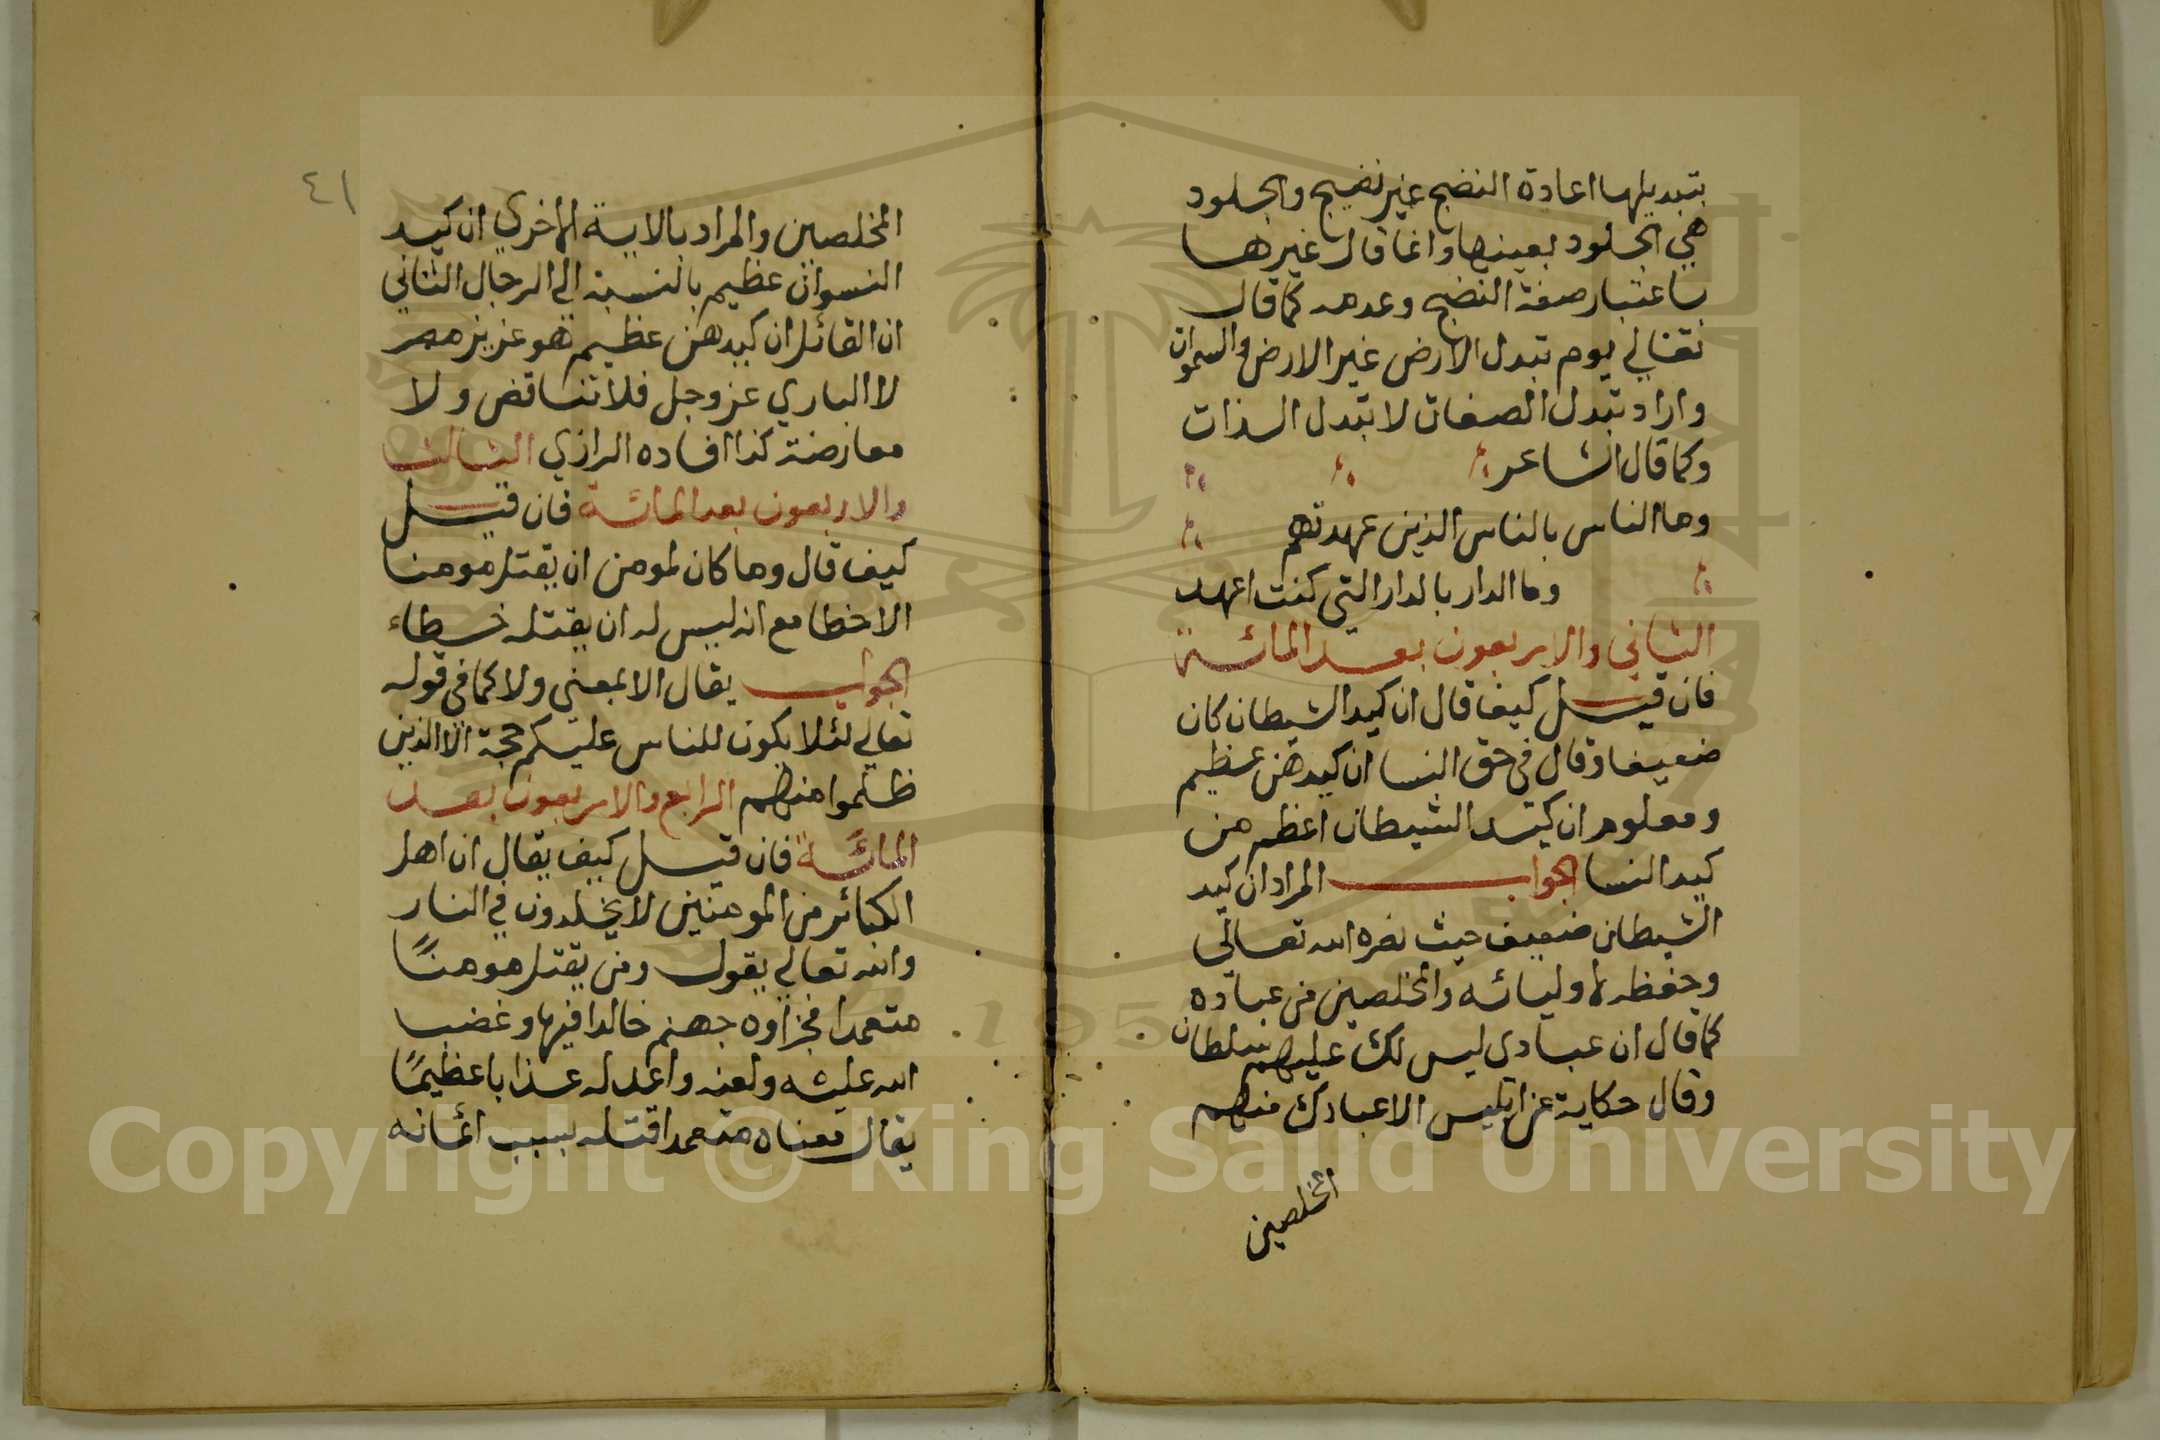 بتبديلها اعادة النضج غير نضيج والجلود
هي الجلود بعينها وانما قال غيرها
باعتبار صفة النضج وعدمه كما قال
تعالي يوم تبدل الارض غير الارض والسموات
واراد تبدل الصفات لا تبدل الذات
وكما قال الشاعر
وما الناس بالناس الذين عهدتهم
وما الدار بالدار التي كنت اعهد
الثاني والاربعون بعد المائة
فان قيل كيف قال ان كيد الشيطان كان
ضعيفا وقال في حق النسا ان كيدهن عظيم
ومعلوم ان كيد الشيطان اعظم من
كيد النسا الجواب المراد ان كيد
الشيطان ضعيف حيث نصره الله تعالي
وحفظه لاوليائه والمخلصين من عباده
كما قال ان عبادي ليس لك عليهم سلطان
وقال حكاية عن ابليس الا عبادك منهم
المخلصين
٤١
المخلصين والمراد بالاية الاخري ان كيد
النسوان عظيم بالنسبة الي الرجال الثاني
ان القائل ان كيدهن عظيم هو عزيز مصر
لا الباري عز وجل فلا تناقض ولا
معارضة كذا افاده الرازي الثالث
والاربعون بعد المائة فان قيل
كيف قال وما كان لمومن ان يقتل مومنا
الا خطا مع انه ليس له ان يقتله خطاء
الجواب يقال الا بمعني ولا كما في قوله
تعالي لئلا يكون للناس عليكم حجة الا الذين
ظلموا منهم الرابع والاربعون بعد
المائة فان قيل كيف يقال ان اهل
الكبائر من المومنين لا يخلدون في النار
والله تعالي يقول ومن يقتل مومنًا
متعمدا فجزاوه جهنم خالدا فيها وغضب
الله عليه ولعنه واعد له عذابا عظيمًا
يقال معناه متعمدا قتله بسبب ائمانه
Copyright © King Saud University
195